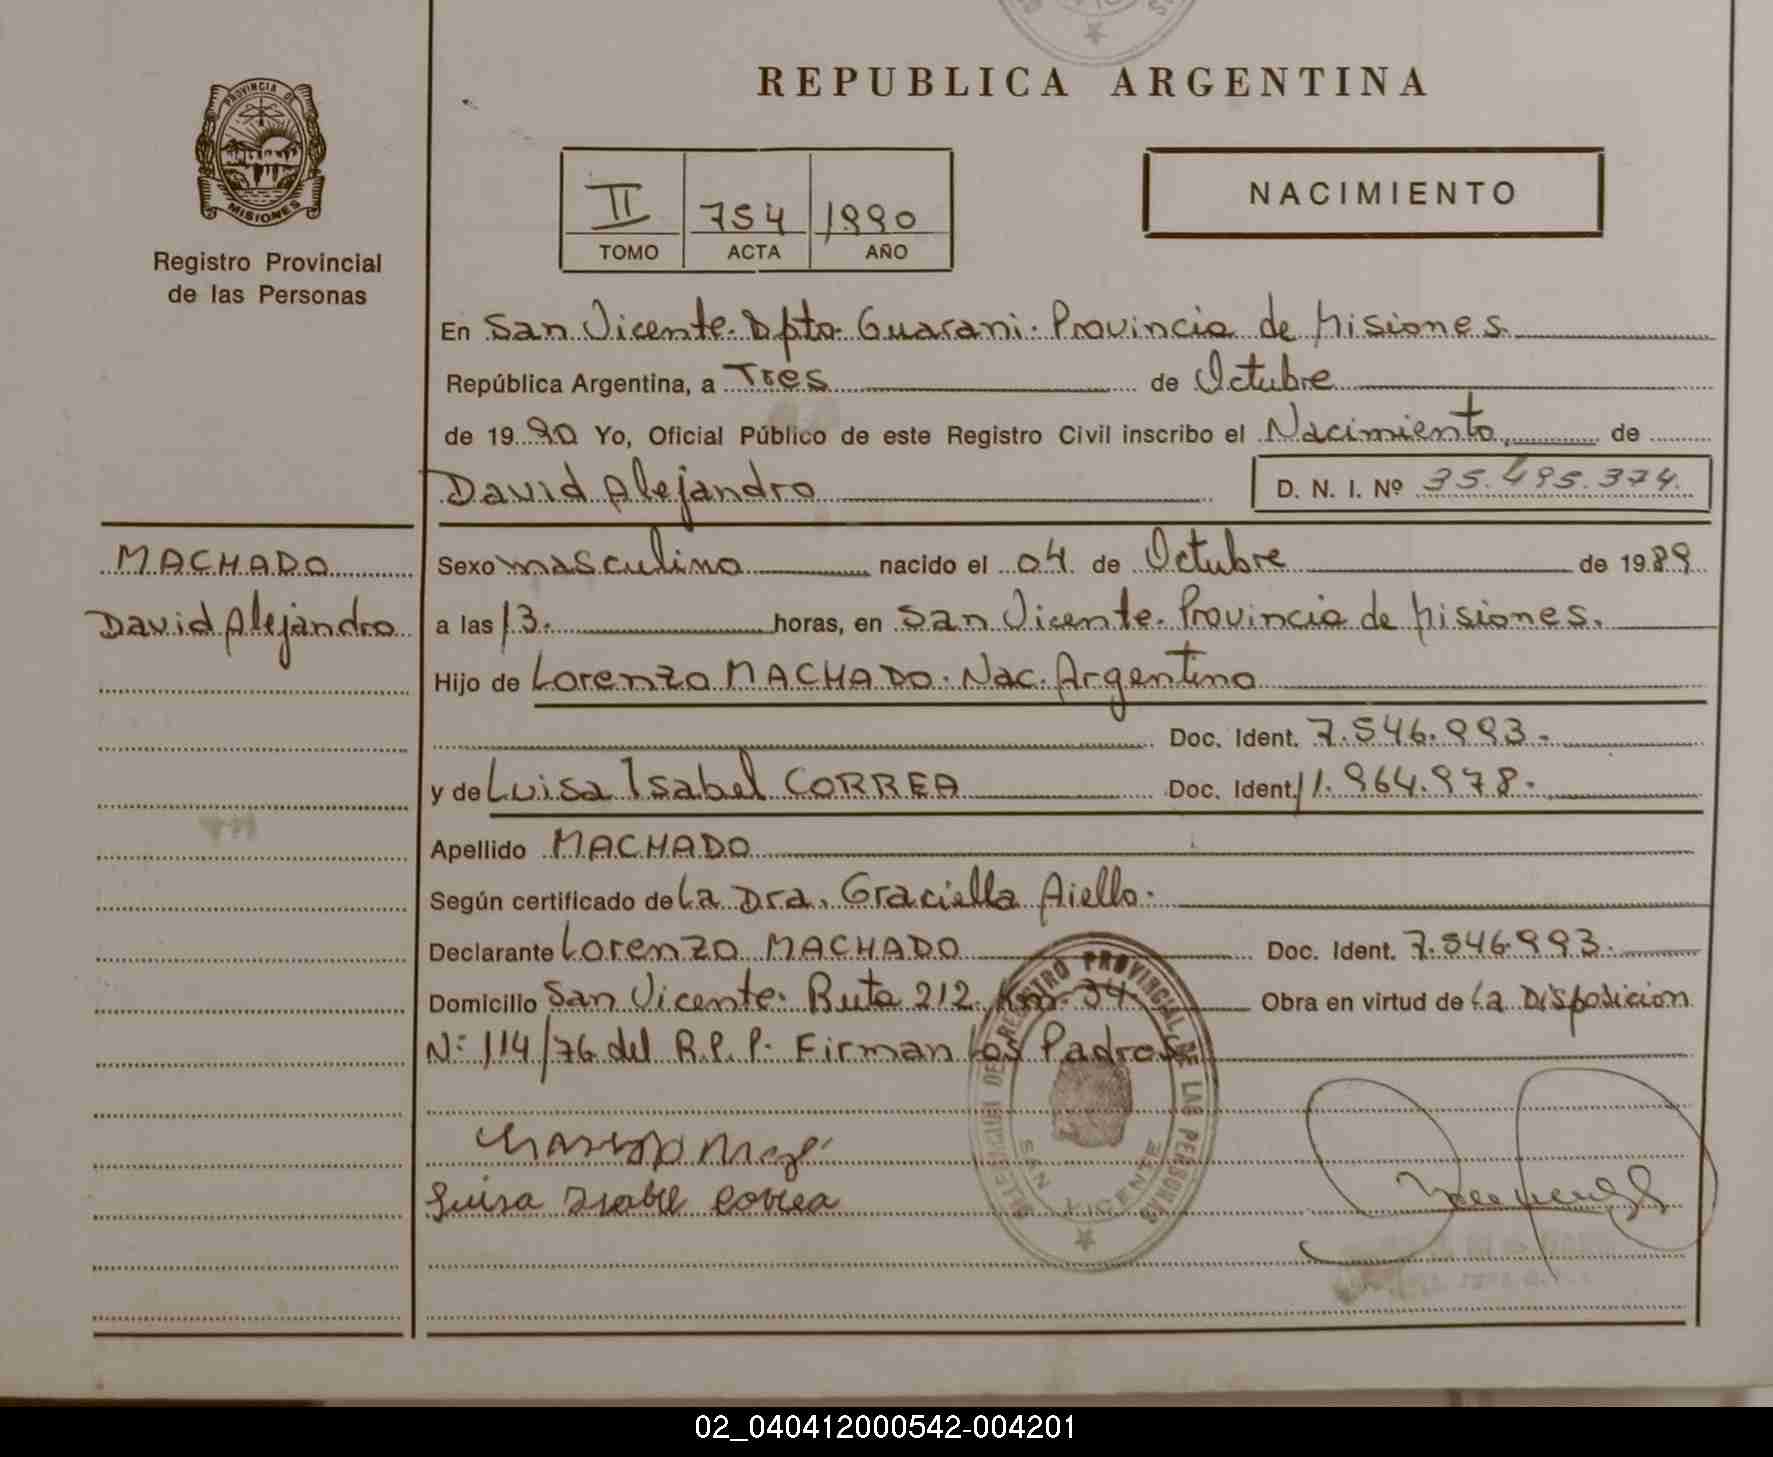 REPUBLICA ARGENTINA
PROVINCIA DE
MISIONES
Registro Provincial
de las Personas
II 754 1990
TOMO ACTA AÑO
NACIMIENTO
En San Vicente. Dpto. Guarani. Provincia de Misiones
República Argentina, a Tres de Octubre
de 1990 Yo, Oficial Público de este Registro Civil inscribo el Nacimiento, de
David Alejandro D. N. I. Nº 35.495.374.
MACHADO
David Alejandro
Sexo masculino nacido el 04 de Octubre de 1989
a las 13. horas, en San Vicente. Provincia de Misiones.
Hijo de Lorenzo MACHADO. Nac. Argentino
Doc. Ident. 7.546.993.
y de Luisa Isabel CORREA Doc. Ident. 11.964.978.
Apellido MACHADO
Según certificado de La Dra. Graciella Aiello.
Declarante Lorenzo MACHADO Doc. Ident. 7.546.993.
Domicilio San Vicente. Ruta 212. Km. 34. Obra en virtud de La Disposicion
Nº 114/76 del R.P.P. Firman los Padres
DEL REGISTRO PROVINCIAL DE LAS PERSONAS
SAN VICENTE
Luisa Isabel Correa
02_040412000542-004201